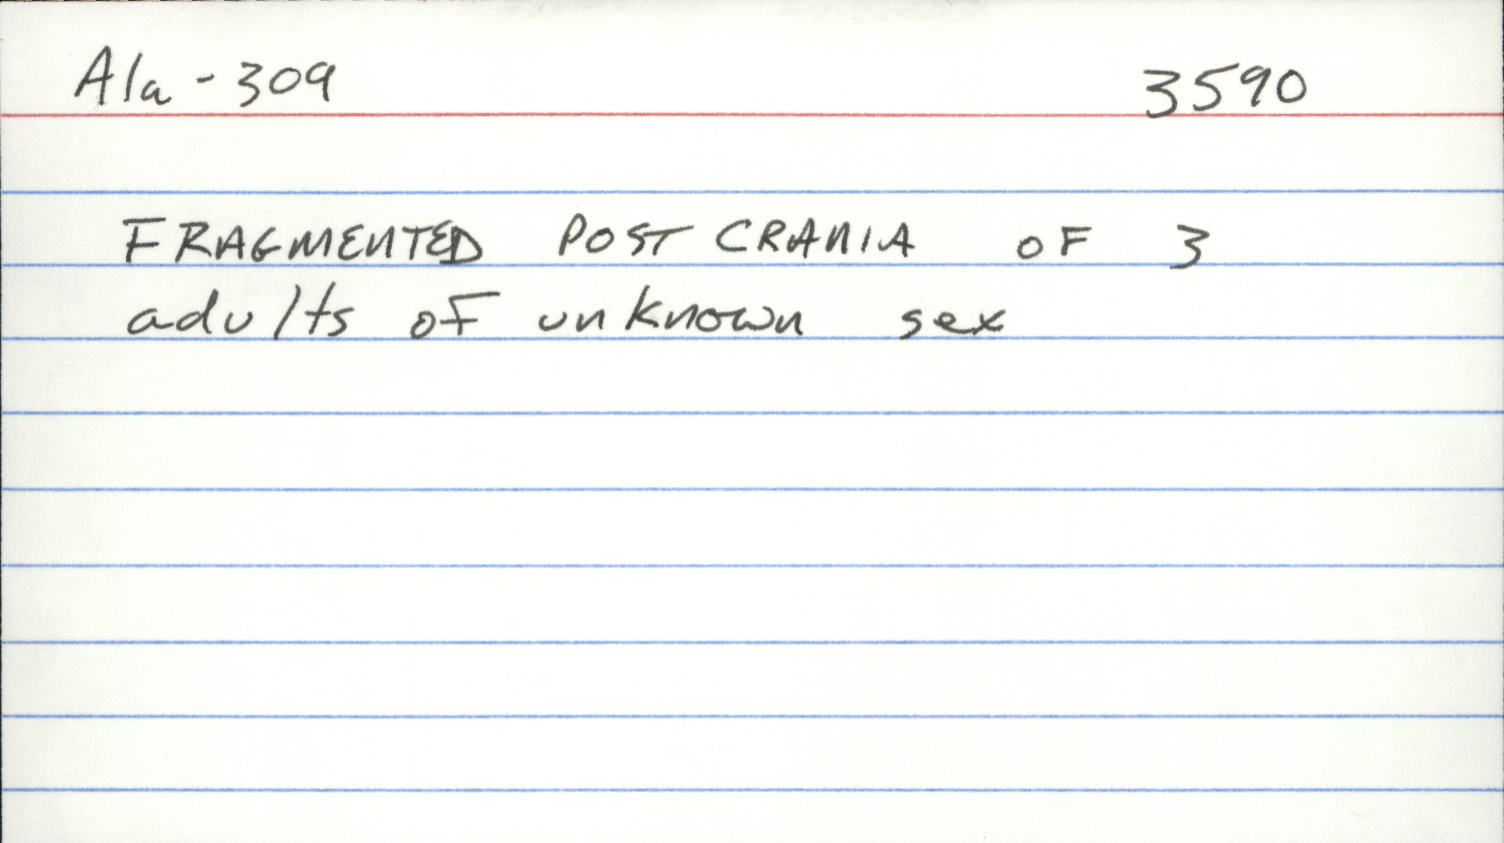 Ala-309 3590
FRAGMENTED POST CRANIA OF 3
adults of unknown sex